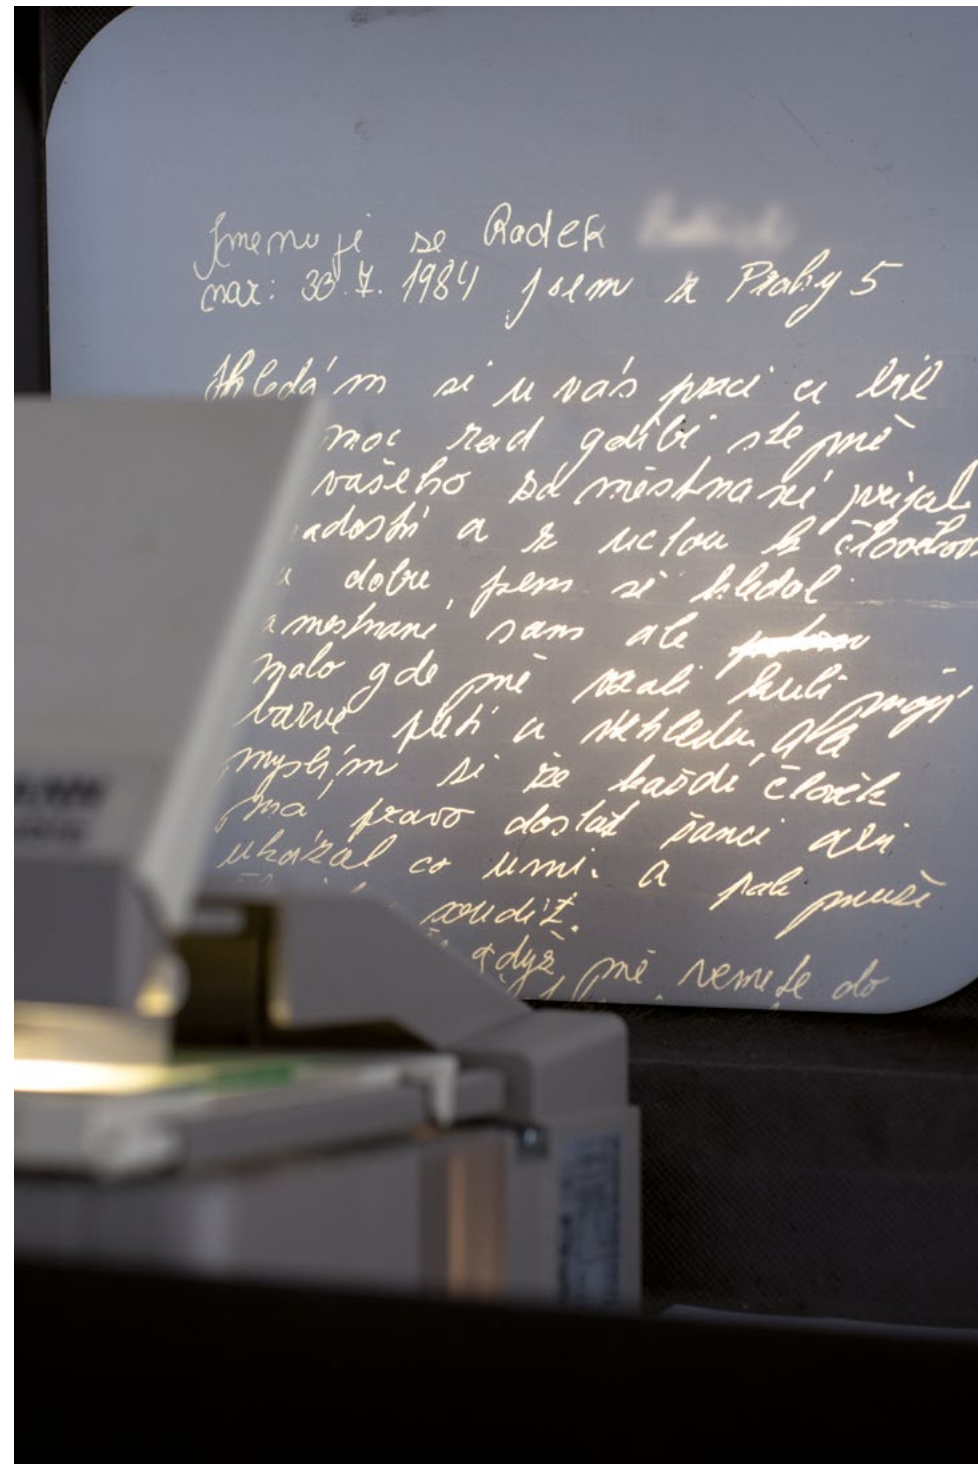 Jmenuji se Radek
nar: 30.7. 1984 jsem z Prahy 5
Hledám si u vás praci a bil
moc rad gdibi ste mě
vašeho zaměstnaní prijal
a z uctou k
dobu jsem si hledal
sam ale
malo gde mě vzali kuli moji
barvě pleti a vzhledu, ale
myslím si že každi človék
ma pravo dostat šanci abi
ukázal co umi. a pak muže
soudit.
gdyž mě vemete do